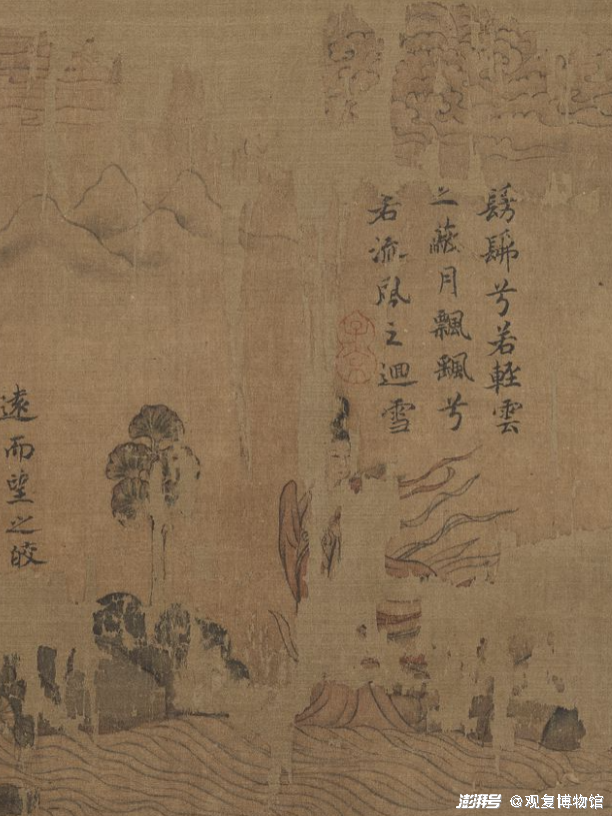 髣髴兮若輕雲
之蔽月飄颻兮
若流風之迴雪
遠而望之皎
澎湃号 @观复博物馆